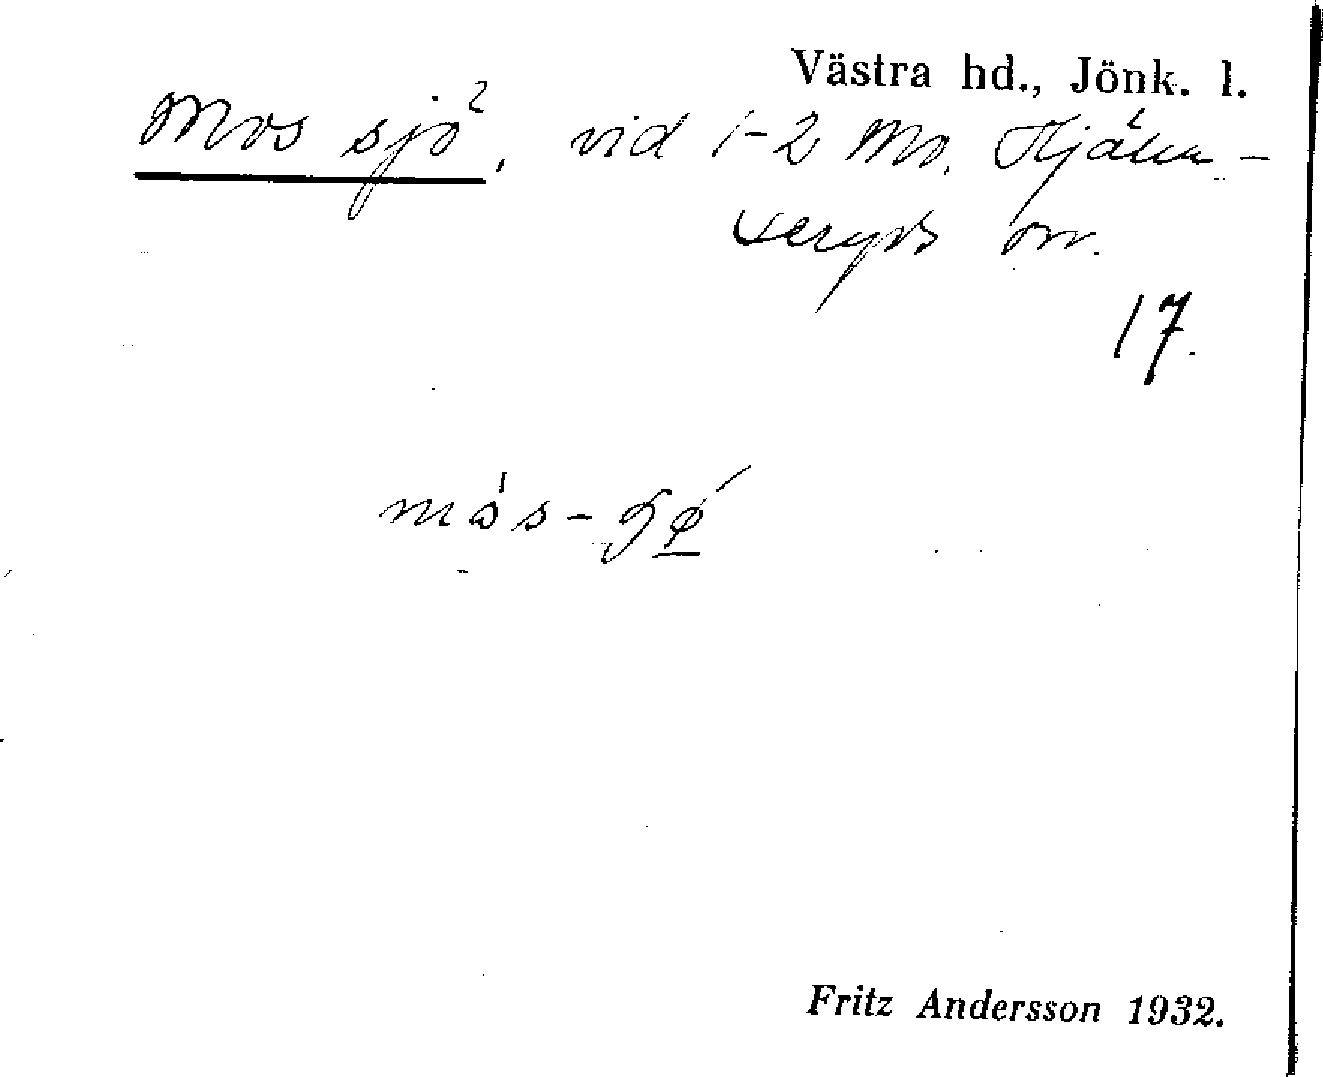 Västra hd., Jönk. l.
Mos sjö², vid 1-2 Mo, Hjälm-
seryds sn.
17.
mós-
Fritz Andersson 1932.